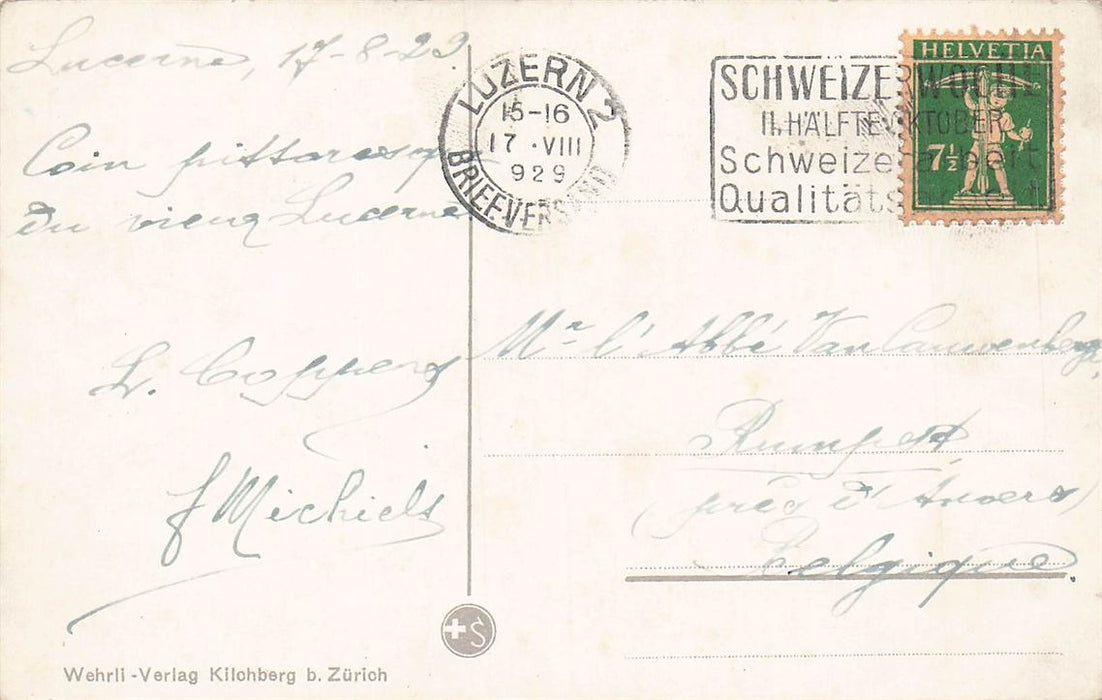 Lucerne, 17-8-29
Coin pittoresq
du vieux Lucerne
L. Coppens
J Michiels
Wehrli-Verlag Kilchberg b. Zürich
LUZERN 2
15-16
17.VIII
929
BRIEFVERSAND
SCHWEIZERWOCHE
II. HÄLFTE OKTOBER
Schweizer
Qualitäts
HELVETIA
7½
Mr l'Abbé Van Cauwenbergh,
Rumpst,
(près d'Anvers)
Belgique.